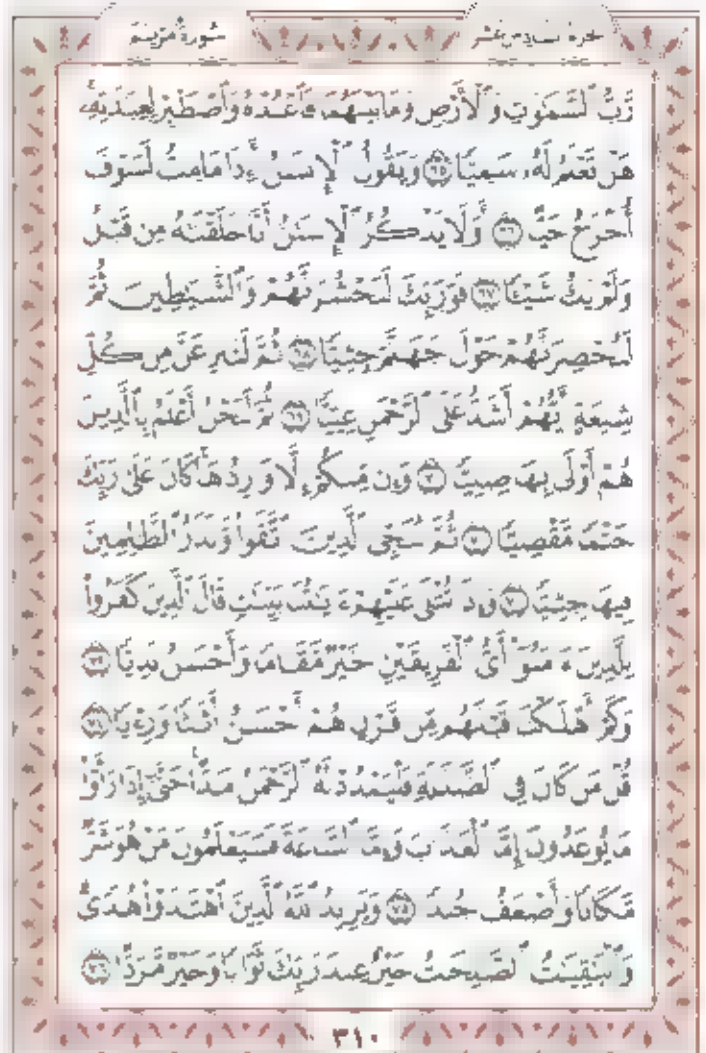 سورة مريم
الجزء السادس عشر
رَّبُّ ٱلسَّمَٰوَٰتِ وَٱلْأَرْضِ وَمَا بَيْنَهُمَا فَٱعْبُدْهُ وَٱصْطَبِرْ لِعِبَٰدَتِهِۦۚ
هَلْ تَعْلَمُ لَهُۥ سَمِيًّا ٦٥ وَيَقُولُ ٱلْإِنسَٰنُ أَءِذَا مَا مِتُّ لَسَوْفَ
أُخْرَجُ حَيًّا ٦٦ أَوَلَا يَذْكُرُ ٱلْإِنسَٰنُ أَنَّا خَلَقْنَٰهُ مِن قَبْلُ
وَلَمْ يَكُ شَيْـًٔا ٦٧ فَوَرَبِّكَ لَنَحْشُرَنَّهُمْ وَٱلشَّيَٰطِينَ ثُمَّ
لَنُحْضِرَنَّهُمْ حَوْلَ جَهَنَّمَ جِثِيًّا ٦٨ ثُمَّ لَنَنزِعَنَّ مِن كُلِّ
شِيعَةٍ أَيُّهُمْ أَشَدُّ عَلَى ٱلرَّحْمَٰنِ عِتِيًّا ٦٩ ثُمَّ لَنَحْنُ أَعْلَمُ بِٱلَّذِينَ
هُمْ أَوْلَىٰ بِهَا صِلِيًّا ٧٠ وَإِن مِّنكُمْ إِلَّا وَارِدُهَاۚ كَانَ عَلَىٰ رَبِّكَ
حَتْمًا مَّقْضِيًّا ٧١ ثُمَّ نُنَجِّى ٱلَّذِينَ ٱتَّقَوا۟ وَّنَذَرُ ٱلظَّٰلِمِينَ
فِيهَا جِثِيًّا ٧٢ وَإِذَا تُتْلَىٰ عَلَيْهِمْ ءَايَٰتُنَا بَيِّنَٰتٍ قَالَ ٱلَّذِينَ كَفَرُوا۟
لِلَّذِينَ ءَامَنُوٓا۟ أَىُّ ٱلْفَرِيقَيْنِ خَيْرٌ مَّقَامًا وَأَحْسَنُ نَدِيًّا ٧٣
وَكَمْ أَهْلَكْنَا قَبْلَهُم مِّن قَرْنٍ هُمْ أَحْسَنُ أَثَٰثًا وَرِءْيًا ٧٤
قُلْ مَن كَانَ فِى ٱلضَّلَٰلَةِ فَلْيَمْدُدْ لَهُ ٱلرَّحْمَٰنُ مَدًّاۚ حَتَّىٰٓ إِذَا رَأَوْا۟
مَا يُوعَدُونَ إِمَّا ٱلْعَذَابَ وَإِمَّا ٱلسَّاعَةَ فَسَيَعْلَمُونَ مَنْ هُوَ شَرٌّ
مَّكَانًا وَأَضْعَفُ جُندًا ٧٥ وَيَزِيدُ ٱللَّهُ ٱلَّذِينَ ٱهْتَدَوْا۟ هُدًىۗ
وَٱلْبَٰقِيَٰتُ ٱلصَّٰلِحَٰتُ خَيْرٌ عِندَ رَبِّكَ ثَوَابًا وَخَيْرٌ مَّرَدًّا ٧٦
٣١٠